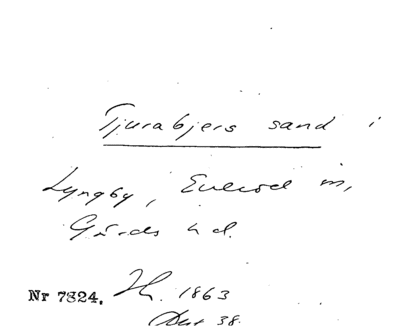 Tjurabjers sand i
Lyngby, Everöd sn,
Gärds hd.
Nr 7824. Th. 1863
38.